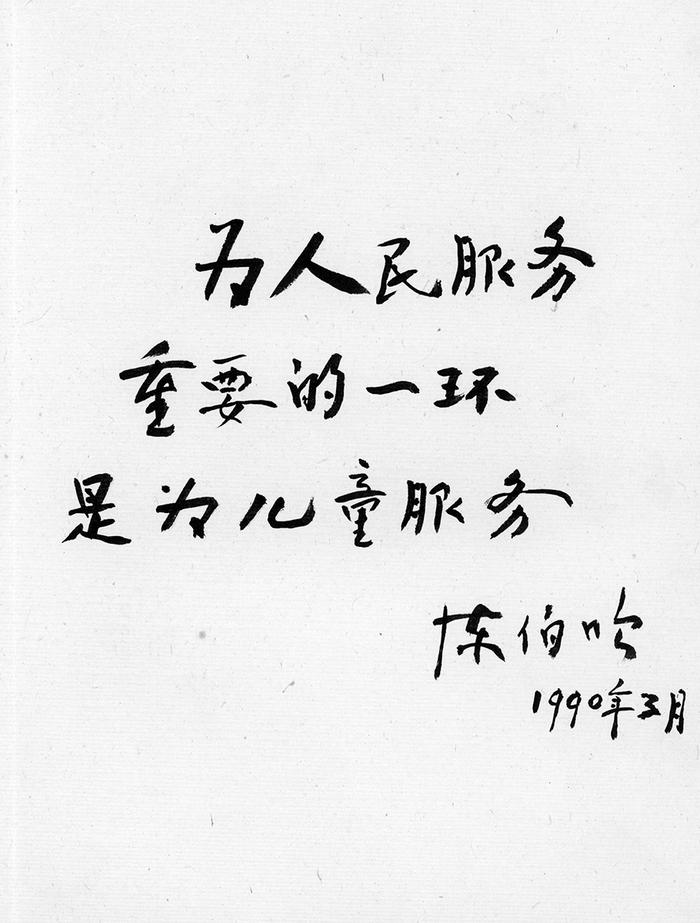 为人民服务
重要的一环
是为儿童服务
陈伯吹
1990年3月